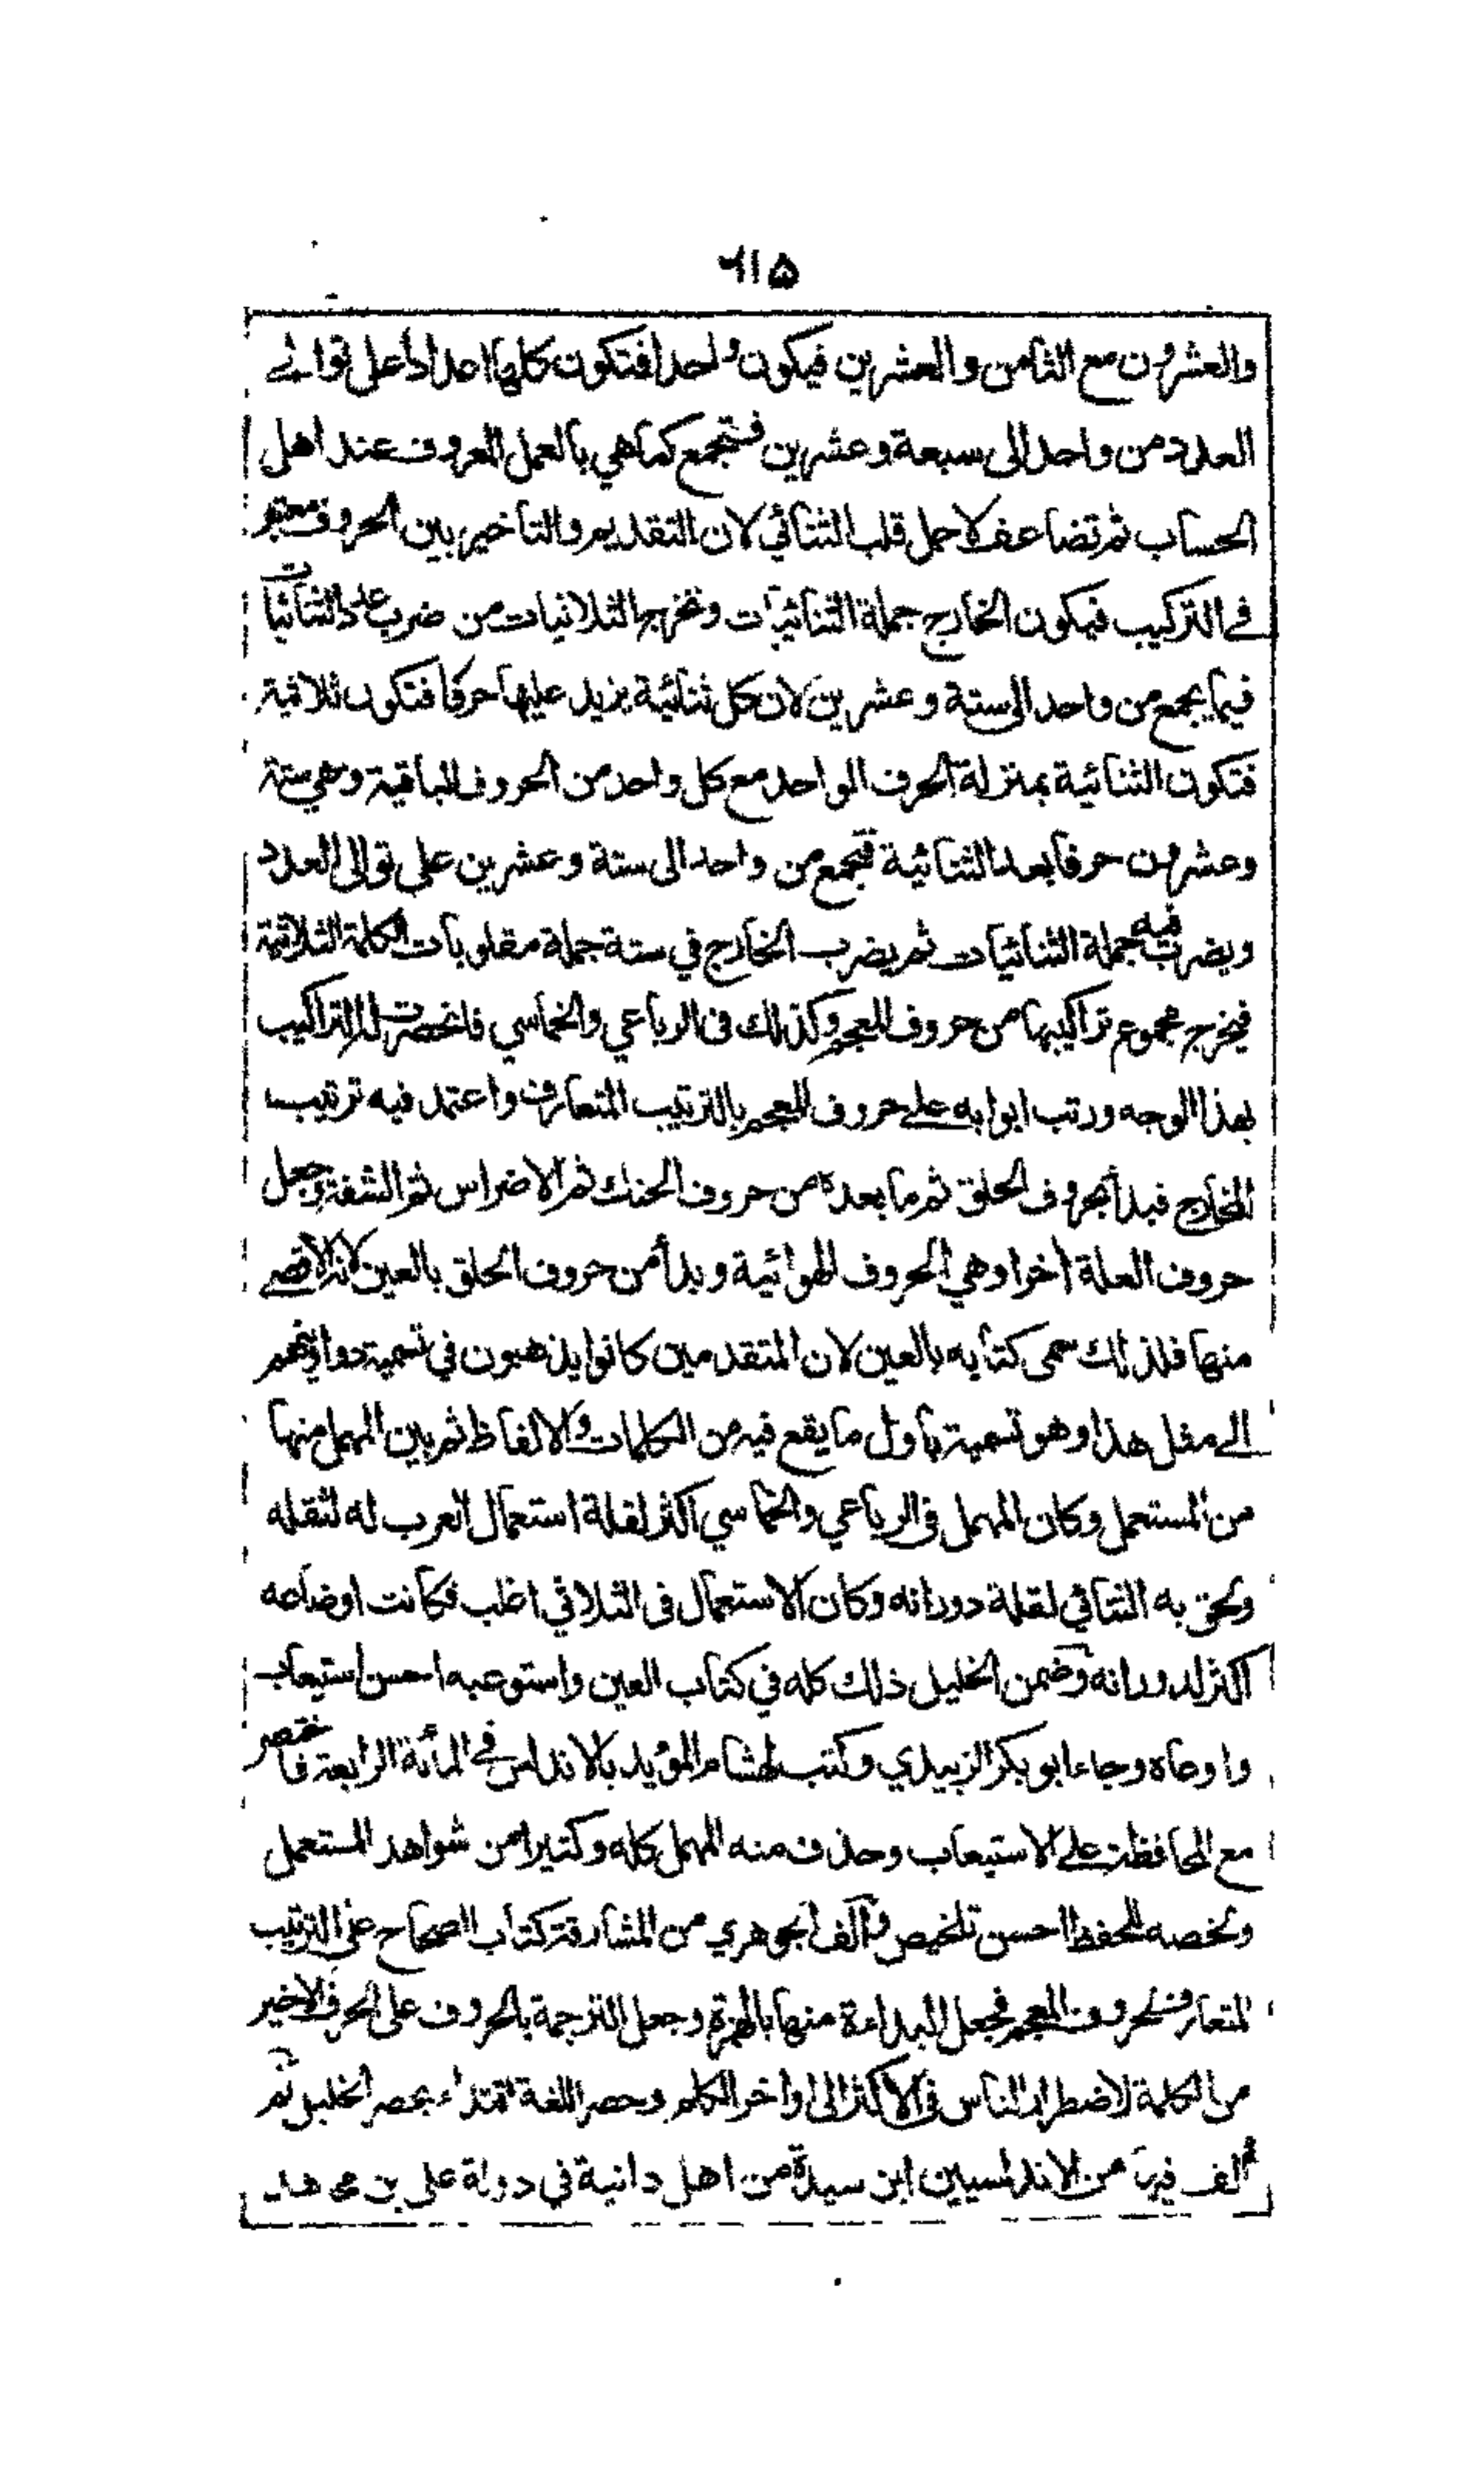 ٦١٥
والعشرون مع الثامن والعشرين فيكون واحدا فتكون كلها اعدادا على توالي
العدد من واحد الى سبعة وعشرين فتجمع كما هي بالعمل المعروف عند اهل
الحساب ثم تضاعف لاجل قلب الثنائي لان التقديم والتاخير بين الحروف معتبر
في التركيب فيكون الخارج جملة الثنائيات وتخرج الثلاثيات من ضرب عدد الثنائيات
فيما يجمع من واحد الى ستة وعشرين لان كل ثنائية يزيد عليها حرفا فتكون ثلاثية
فتكون الثنائية بمنزلة الحرف الواحد مع كل واحد من الحروف الباقية وهي ستة
وعشرون حرفا بعد الثنائية فتجمع من واحد الى ستة وعشرين على توالي العدد
ويضرب فيه جملة الثنائيات ثم يضرب الخارج في ستة جملة مقلوبات الكلمة الثلاثية
فيخرج مجموع تراكيبها من حروف المعجم وكذلك في الرباعي والخماسي فانحصرت له التراكيب
بهذا الوجه ورتب ابوابه على حروف المعجم بالترتيب المتعارف واعتمد فيه ترتيب
المخارج فبدأ بحروف الحلق ثم ما بعده من حروف الحنك ثم الاضراس ثم الشفة وجعل
حروف العلة اخرا وهي الحروف الهوائية وبدأ من حروف الحلق بالعين لانه الاقصى
منها فلذلك سمى كتابه بالعين لان المتقدمين كانوا يذهبون في تسمية دواوينهم
الى مثل هذا وهو تسمية باول ما يقع فيه من الكلمات والالفاظ ثم بين المهمل منها
من المستعمل وكان المهمل في الرباعي والخماسي اكثر لقلة استعمال العرب له لثقله
ولحق به الثنائي لقلة دورانه وكان الاستعمال في الثلاثي اغلب فكانت اوضاعه
اكثر لدورانه وضمن الخليل ذلك كله في كتاب العين واستوعبه احسن استيعاب
واوعاه وجاء ابو بكر الزبيدي وكتب لهشام المؤيد بالاندلس في المائة الرابعة فاختصر
مع المحافظة على الاستيعاب وحذف منه المهمل كله وكثيرا من شواهد المستعمل
ولخصه للحفظ احسن تلخيص والف الجوهري من المشارقة كتاب الصحاح على الترتيب
المتعارف لحروف المعجم فجعل البداءة منها بالهمزة وجعل الترجمة بالحروف على الحرف الاخير
من الكلمة لاضطرار الناس في الاكثر الى اواخر الكلم وحصر اللغة اقتداء بحصر الخليل ثم
الف فيها من الاندلسيين ابن سيدة من اهل دانية في دولة علي بن مجاهد